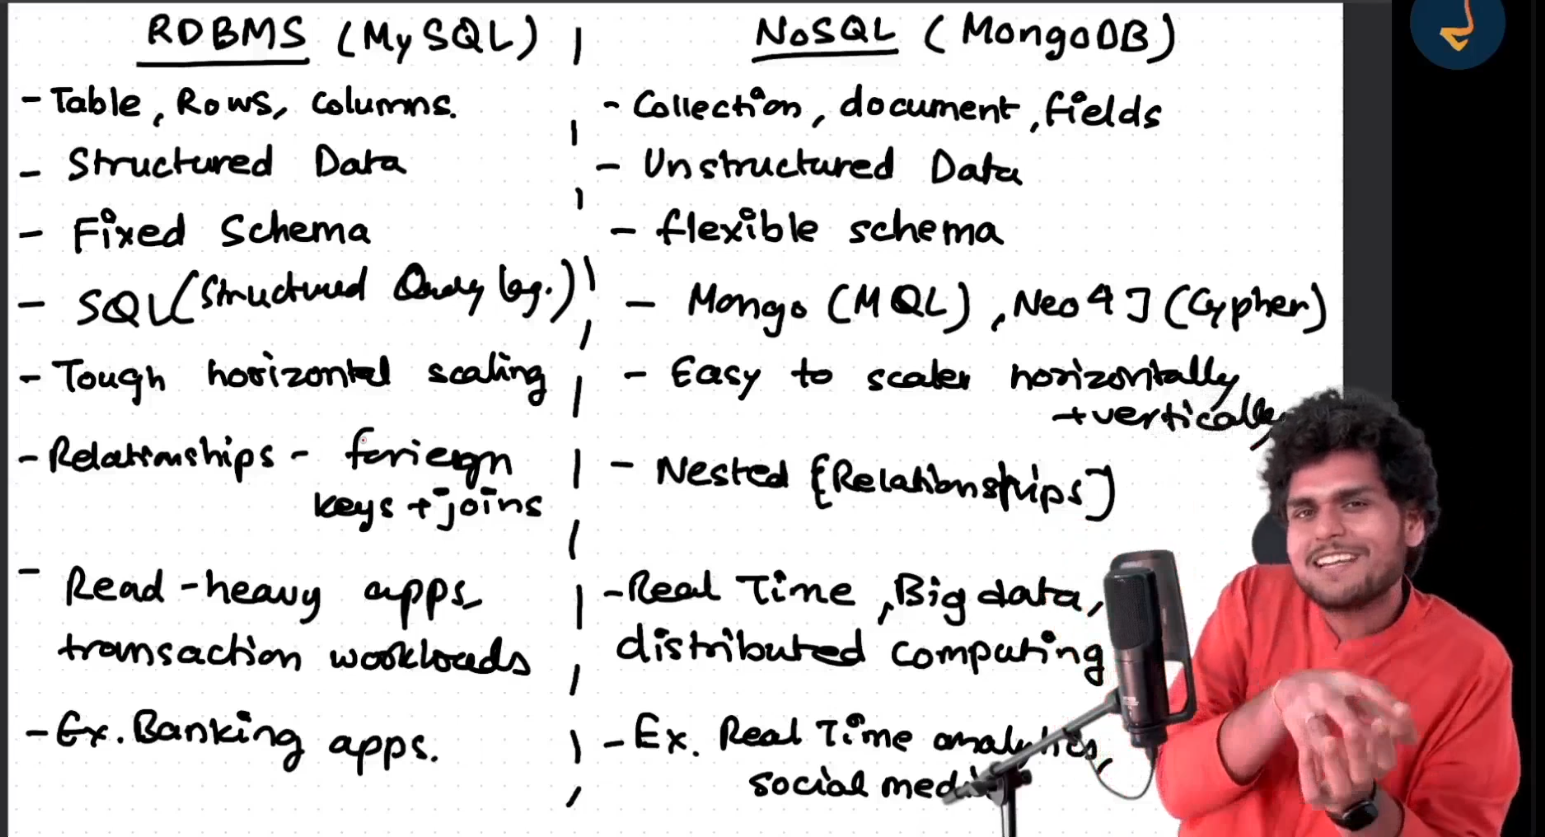 RDBMS (MySQL)
- Table, Rows, Columns.
- Structured Data
- Fixed Schema
- SQL (Structured Query lng.)
- Tough horizontal scaling
- Relationships - foriegn
keys + joins
- Read - heavy apps
transaction workloads
- Ex. Banking apps.
NoSQL (MongoDB)
- Collection, document, fields
- Unstructured Data
- flexible schema
- Mongo (MQL), Neo4J (Cypher)
- Easy to scaler horizontally
+ vertically
- Nested [Relationships]
- Real Time, Big data,
distributed computing
- Ex. Real Time analytics,
social media